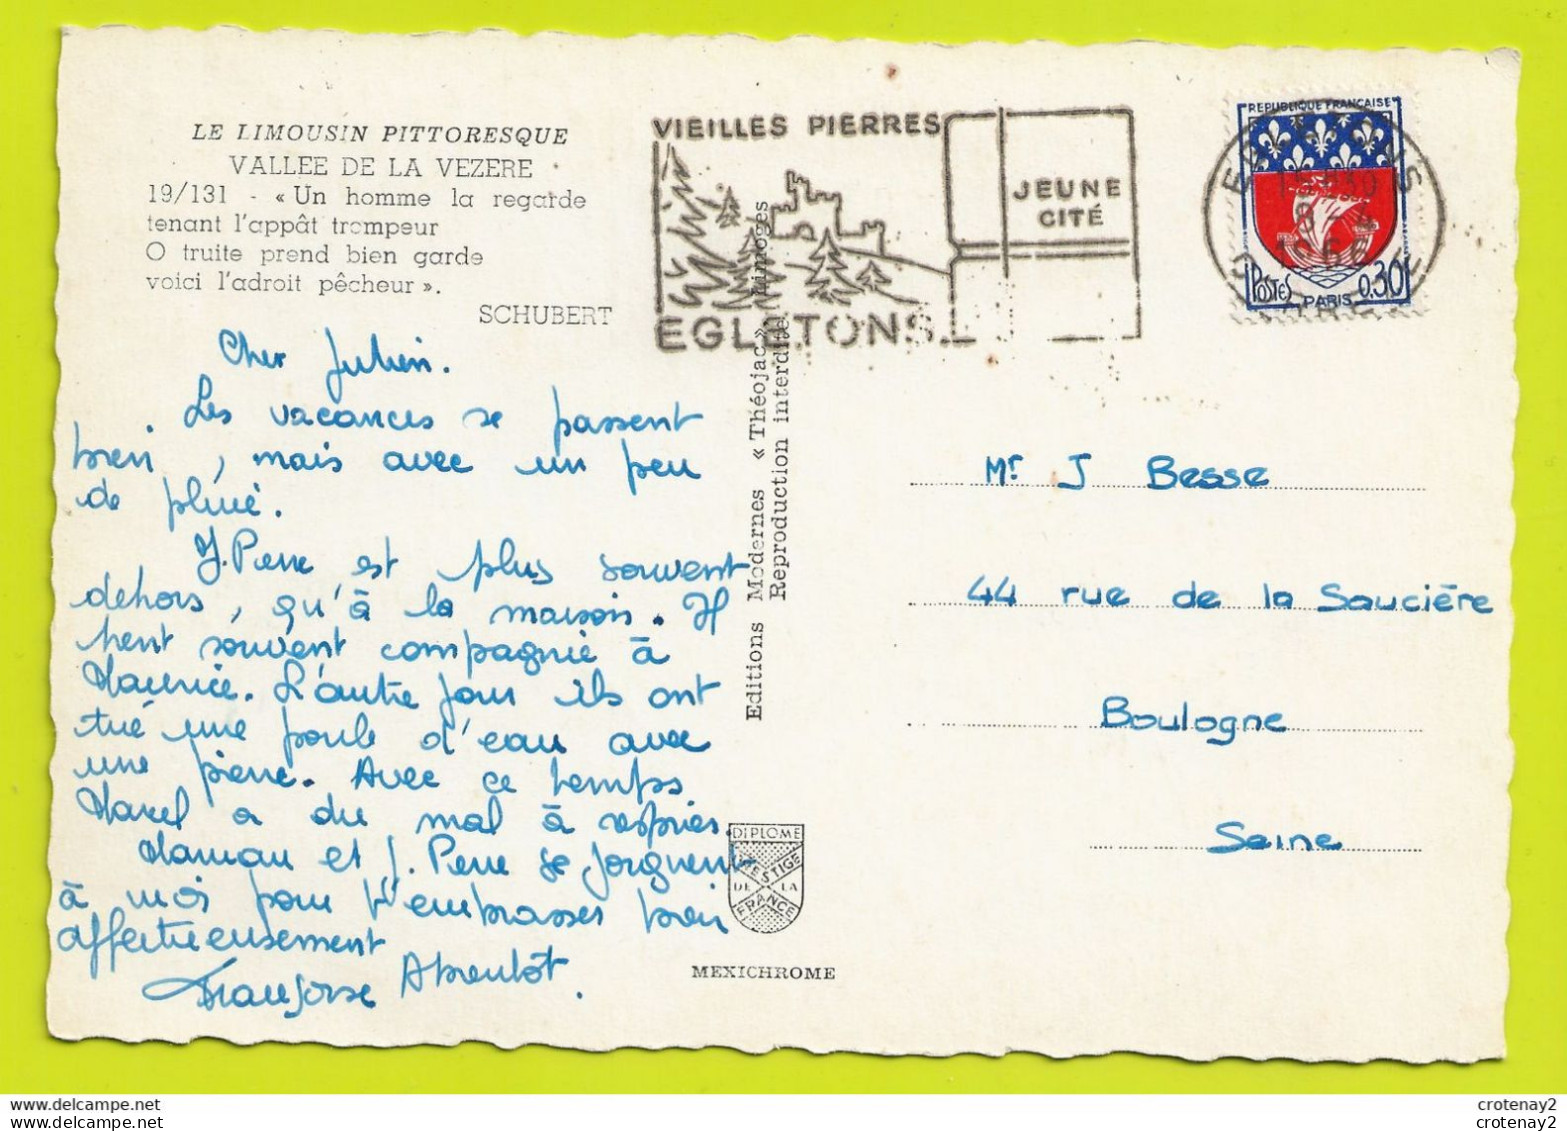 LE LIMOUSIN PITTORESQUE
VALLEE DE LA VEZERE
19/131 - « Un homme la regarde
tenant l'appât trompeur
O truite prend bien garde
voici l'adroit pêcheur ».
SCHUBERT
Cher Julien.
Les vacances se passent
bien, mais avec un peu
de pluie.
J. Pierre est plus souvent
dehors, qu'à la maison. Il
tient souvent compagnie à
Maurice. L'autre jour ils ont
tué une poule d'eau avec
une pierre. Avec ce temps
Marcel a du mal à respirer.
Maman et J. Pierre se joignent
à moi pour t'embrasser bien
affectueusement
Françoise A bientôt.
VIEILLES PIERRES
JEUNE
CITÉ
EGLETONS
Editions Modernes « Théojac » Limoges
Reproduction interdite
DIPLOME
PRESTIGE
DE LA
FRANCE
MEXICHROME
REPUBLIQUE FRANCAISE
POSTES
0,30F
PARIS
EGLETONS
15H30
8 - 4
1966
CORREZE
Mr J Besse
44 rue de la Saucière
Boulogne
Seine
crotenay2
crotenay2